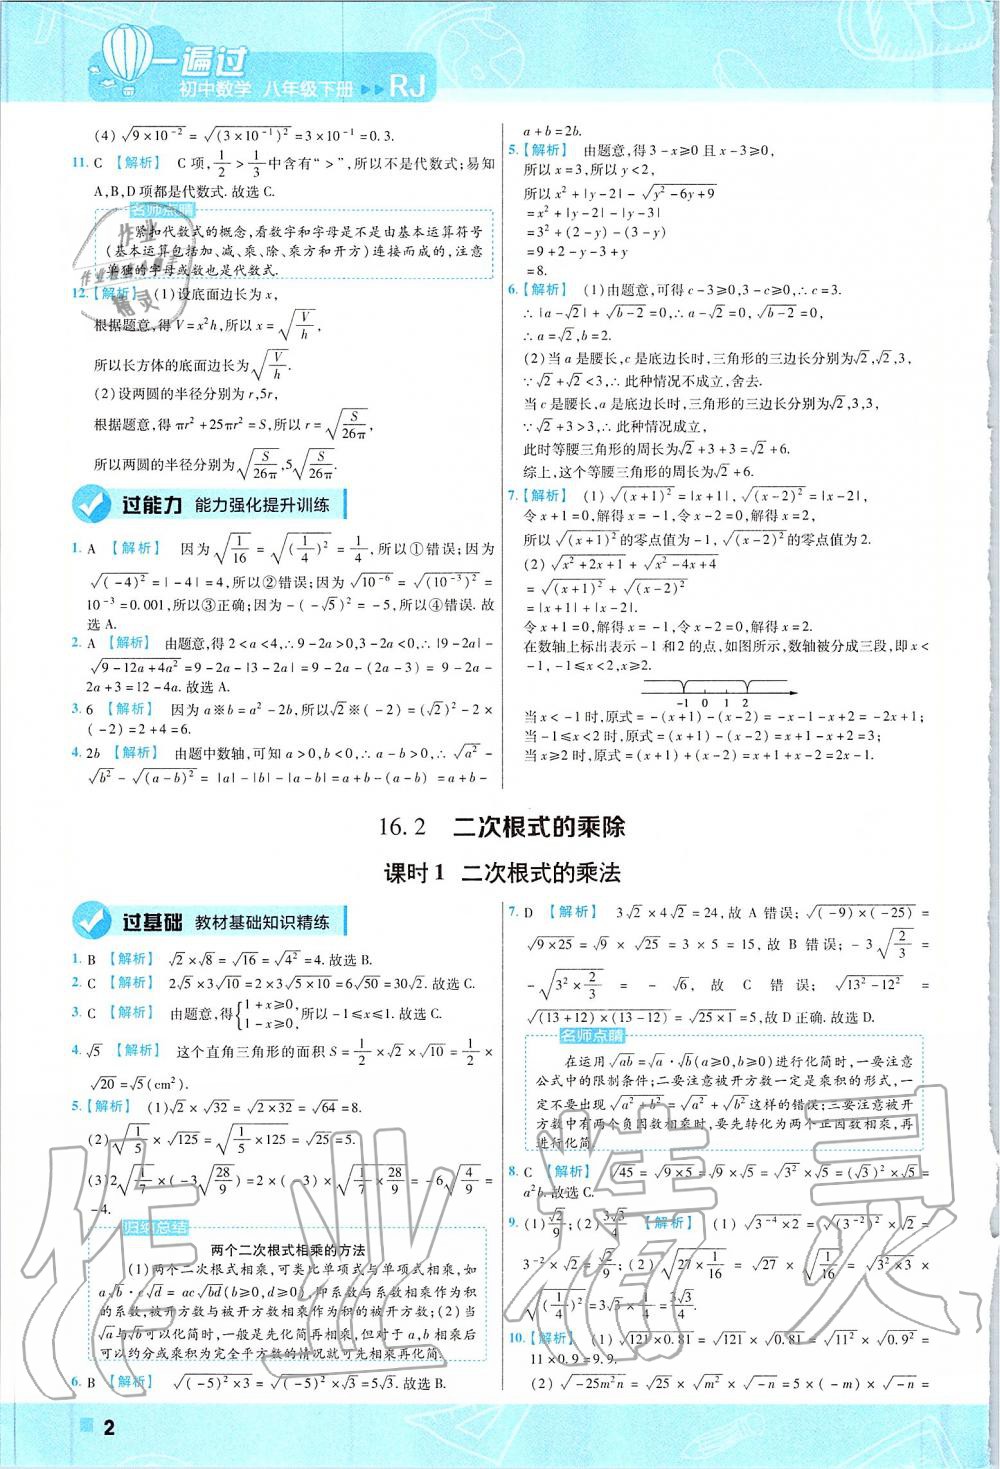 一遍过
初中数学 八年级下册 ▶▶ RJ
(4) √(9×10⁻²) = √((3×10⁻¹)²) =3×10⁻¹=0.3.
11. C 【解析】 C 项, 1/2 > 1/3 中含有“>”,所以不是代数式;易知
A,B,D 项都是代数式. 故选 C.
名师点睛
紧扣代数式的概念,看数字和字母是不是由基本运算符号
(基本运算包括加、减、乘、除、乘方和开方)连接而成的,注意
单独的字母或数也是代数式.
12. 【解析】 (1)设底面边长为 x,
根据题意,得 V=x²h,所以 x=√(V/h),
所以长方体的底面边长为√(V/h).
(2)设两圆的半径分别为 r,5r,
根据题意,得 πr²+25πr²=S,所以 r=√(S/26π),
所以两圆的半径分别为√(S/26π),5√(S/26π).
过能力 能力强化提升训练
1. A 【解析】 因为√(1/16) = √((1/4)²) = 1/4,所以①错误;因为
√((-4)²) =|-4|=4,所以②错误;因为√(10⁻⁶) =√((10⁻³)²) =
10⁻³=0.001,所以③正确;因为-(-√5)²=-5,所以④错误. 故
选 A.
2. A 【解析】 由题意,得 2<a<4,∴9-2a>0,3-2a<0,∴|9-2a|-
√(9-12a+4a²) =9-2a-|3-2a|=9-2a-(2a-3)=9-2a-
2a+3=12-4a. 故选 A.
3. 6 【解析】 因为 a※b=a²-2b,所以√2※(-2)=(√2)²-2×
(-2)=2+4=6.
4. 2b 【解析】 由题中数轴,可知 a>0,b<0,∴a-b>0,∴√(a²)-
√(b²)-√((a-b)²) =|a|-|b|-|a-b|=a+b-(a-b)=a+b-
a+b=2b.
5. 【解析】 由题意,得 3-x≥0 且 x-3≥0,
所以 x=3,所以 y<2,
所以 x²+|y-2|-√(y²-6y+9)
=x²+|y-2|-|y-3|
=3²+(2-y)-(3-y)
=9+2-y-3+y
=8.
6. 【解析】 (1)由题意,可得 c-3≥0,3-c≥0,∴c=3.
∴|a-√2|+√(b-2)=0,∴|a-√2|=0,√(b-2)=0,
∴a=√2,b=2.
(2)当 a 是腰长,c 是底边长时,三角形的三边长分别为√2,√2,3,
∵√2+√2<3,∴此种情况不成立,舍去.
当 c 是腰长,a 是底边长时,三角形的三边长分别为√2,3,3,
∵√2+3>3,∴此种情况成立,
此时等腰三角形的周长为√2+3+3=√2+6.
综上,这个等腰三角形的周长为√2+6.
7. 【解析】 (1) √((x+1)²)=|x+1|,√((x-2)²)=|x-2|,
令 x+1=0,解得 x=-1,令 x-2=0,解得 x=2,
所以 √((x+1)²)的零点值为-1,√((x-2)²)的零点值为 2.
(2) √(x²+2x+1) + √(x²-4x+4)
=√((x+1)²)+√((x-2)²)
=|x+1|+|x-2|.
令 x+1=0,解得 x=-1,令 x-2=0,解得 x=2,
在数轴上标出表示-1 和 2 的点,如图所示,数轴被分成三段,即 x<
-1,-1≤x<2,x≥2.
-1 0 1 2
当 x<-1 时,原式=-(x+1)-(x-2)=-x-1-x+2=-2x+1;
当-1≤x<2 时,原式=(x+1)-(x-2)=x+1-x+2=3;
当 x≥2 时,原式=(x+1)+(x-2)=x+1+x-2=2x-1.
16.2 二次根式的乘除
课时 1 二次根式的乘法
过基础 教材基础知识精练
1. B 【解析】 √2×√8=√16=√(4²)=4. 故选 B.
2. C 【解析】 2√5×3√10=2×3√(5×10)=6√50=30√2. 故选 C.
3. C 【解析】 由题意,得{1+x≥0, 1-x≥0,所以-1≤x≤1. 故选 C.
4. √5 【解析】 这个直角三角形的面积 S=1/2×√2×√10=1/2×
√20=√5(cm²).
5. 【解析】 (1)√2×√32=√(2×32)=√64=8.
(2)√(1/5)×√125=√(1/5×125)=√25=5.
(3)2√(1/7)×(-3√(28/9))=2×(-3)×√(1/7×28/9)=-6√(4/9)=
-4.
归纳总结
两个二次根式相乘的方法
(1)两个二次根式相乘,可类比单项式与单项式相乘,如
a√b·c√d=ac√(bd)(b≥0,d≥0),即系数与系数相乘作为积
的系数,被开方数与被开方数相乘作为积的被开方数;(2)当
√a与√b可以化简时,一般是先化简再相乘,但对于 a,b 相乘后
可以约分或乘积为完全平方数的情况就可先相乘再化简.
6. B 【解析】 √((-5)²×3)=√((-5)²)×√3=5√3. 故选 B.
7. D 【解析】 3√2×4√2=24,故 A 错误;√((-9)×(-25))=
√(9×25)=√9×√25=3×5=15,故 B 错误;-3√(2/3)=
-√(3²×2/3)=-√6,故 C 错误;√(13²-12²)=
√((13+12)×(13-12))=√(25×1)=5,故 D 正确. 故选 D.
名师点睛
在运用√(ab)=√a·√b(a≥0,b≥0)进行化简时,一要注意
公式中的限制条件;二要注意被开方数一定是乘积的形式,一
定不要出现√(a²+b²)=√(a²)+√(b²)这样的错误;三要注意被开
方数中有两个负因数相乘时,要先转化为两个正因数相乘,再
进行化简.
8. C 【解析】 √45=√(9×5)=√9×√5=√(3²)×√5=(√3)²×√5=
a²b. 故选 C.
9. (1)√2/9;(2)3√3/4 【解析】 (1)√(3⁻⁴×2)=√((3⁻²)²)×√2=
3⁻²×√2=√2/9;(2)√(27×1/16)=√27×√(1/16)=√(3²×3)×
√((1/4)²)=3√3×1/4=3√3/4.
10. 【解析】 (1)√(121×0.81)=√121×√0.81=√(11²)×√(0.9²)=
11×0.9=9.9.
(2)√(-25m²n)=√25×√(m²)×√(-n)=5×(-m)×√(-n)=
2
作业精灵